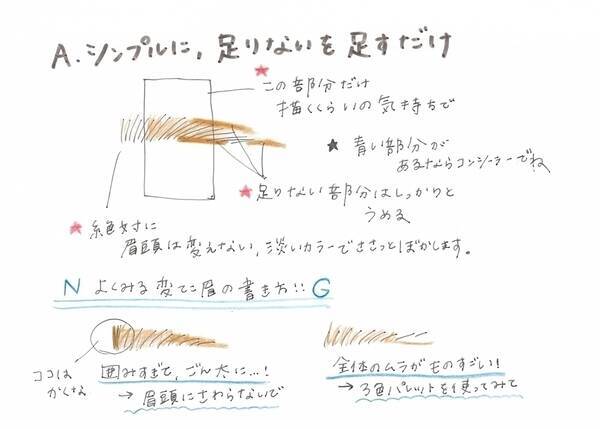 A. シンプルに、足りないを足すだけ
★ この部分だけ
描くくらいの気持ちで
★ 青い部分が
あるならコンシーラーでね
★ 足りない部分はしっかりと
うめる
★ 絶対に
眉頭は変えない、淡いカラーでささっとぼかします。
N よくみる変てこ眉の書き方!! G
ココは
かくな
囲みすぎで、ごん太に…!
→ 眉頭にさわらないで
全体のムラがものすごい!
→ 3色パレットを使ってみて